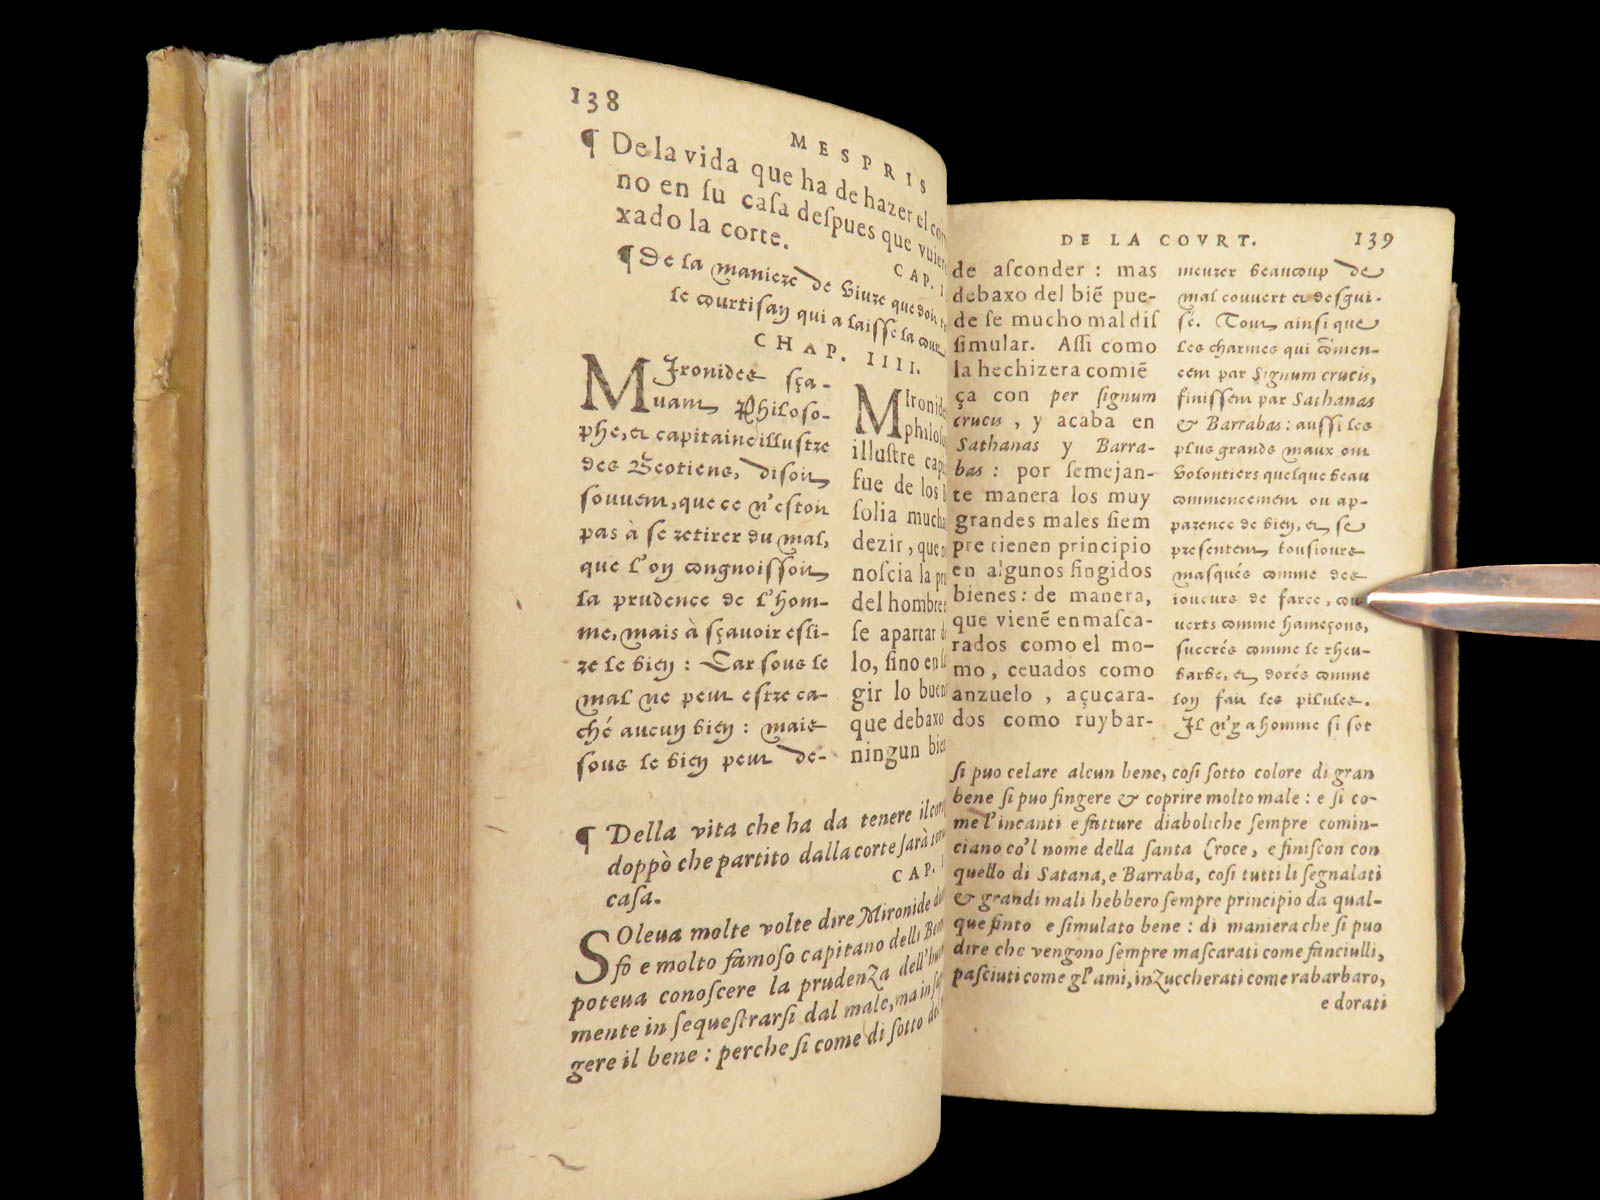 138
MESPRIS
¶ De la vida que ha de hazer el
no en ſu caſa deſpues que
xado la corte.
CAP.
¶ De la maniere de viure que doit
le courtisan qui a laissé la cour
CHAP. IIII.
MJronides sça-
uant Philoso-
phe, et capitaine illustre
des Beotiens, disoit
souuent, que ce n'estoit
pas à se retirer du mal,
que l'on congnoissoit
la prudence de l'hom-
me, mais à sçauoir esli-
re le bien : Car sous le
mal ne peut estre ca-
ché aucun bien : mais
sous le bien peut de-
MIronides
philoſo
illuſtre
fue de los
ſolia
dezir, que
noſcia la
del hombre
ſe apartar
lo, ſino en
gir lo bueno
que debaxo
ningun bien
¶ Della vita che ha da tenere il
doppò che partito dalla corte ſarà
CAP.
caſa.
SOleua molte volte dire Mironide
fo e molto famoſo capitano delli
poteua conoſcere la prudenza dell'
mente in ſequeſtrarſi dal male, ma in
gere il bene : perche ſi come di ſotto
DE LA COVRT.
139
de aſconder : mas
debaxo del biẽ pue-
de ſe mucho mal diſ
ſimular. Aſſi como
la hechizera comiẽ
ça con per ſignum
crucis, y acaba en
Sathanas y Barra-
bas : por ſemejan-
te manera los muy
grandes males ſiem
pre tienen principio
en algunos fingidos
bienes : de manera,
que vienẽ enmaſca-
rados como el mo-
mo, ceuados como
anzuelo, açucara-
dos como ruybar-
meurer beaucoup de
mal couuert et desgui-
sé. Tout ainsi que
les charmes qui cõmen-
cent par Signum crucis,
finissent par Sathanas
& Barrabas : aussi les
plus grands maux ont
volontiers quelque beau
commencement ou ap-
parence de bien, et se
presentent tousiours
masqués comme des
ioueurs de farce, cou
uerts comme hameçons,
succrés comme le rheu-
barbe, et dorés comme
lon fait les pilules.
Il n'y a homme si sot
ſi puo celare alcun bene, coſi ſotto colore di gran
bene ſi puo fingere & coprire molto male : e ſi co-
me l'incanti e fatture diaboliche ſempre comin-
ciano co'l nome della ſanta Croce, e finiſcon con
quello di Satana, e Barraba, coſi tutti li ſegnalati
& grandi mali hebbero ſempre principio da qual-
que finto e ſimulato bene : di maniera che ſi puo
dire che vengono ſempre maſcarati come fanciulli,
paſciuti come gl'ami, inzuccherati come rabarbaro,
e dorati